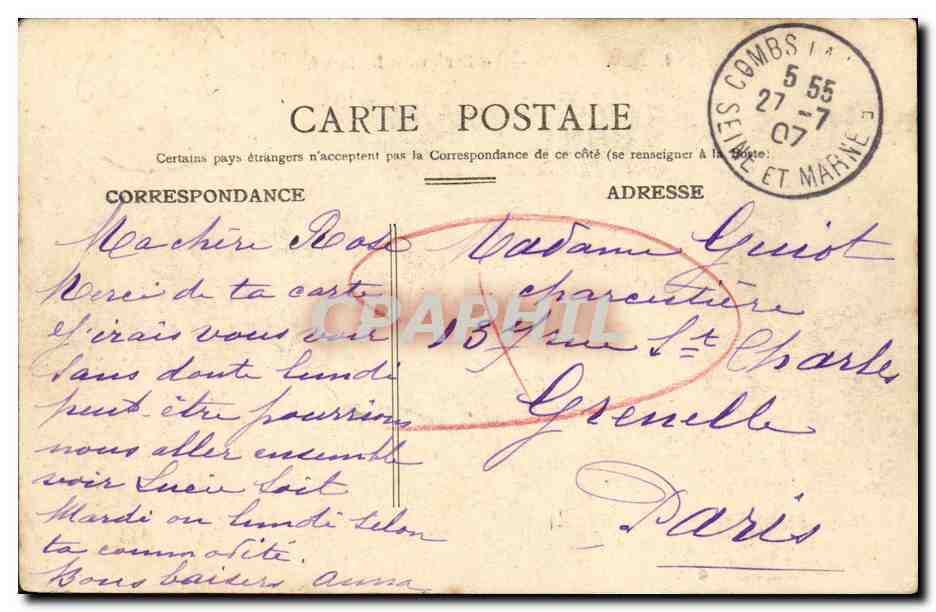 CARTE POSTALE
Certains pays étrangers n'acceptent pas la Correspondance de ce côté (se renseigner à la Poste)
CORRESPONDANCE
Ma chère Rose
Merci de ta carte
J'irais vous voir
Sans doute lundi
peut-être pourrions
nous aller ensemble
voir Lucie Soit
Mardi ou lundi Selon
ta commodité.
Bons baisers Anna
ADRESSE
Madame Guiot
charcutière
137 rue St Charles
Grenelle
Paris
COMBS LA
5 55
27 -7
07
SEINE ET MARNE
CPAPHIL